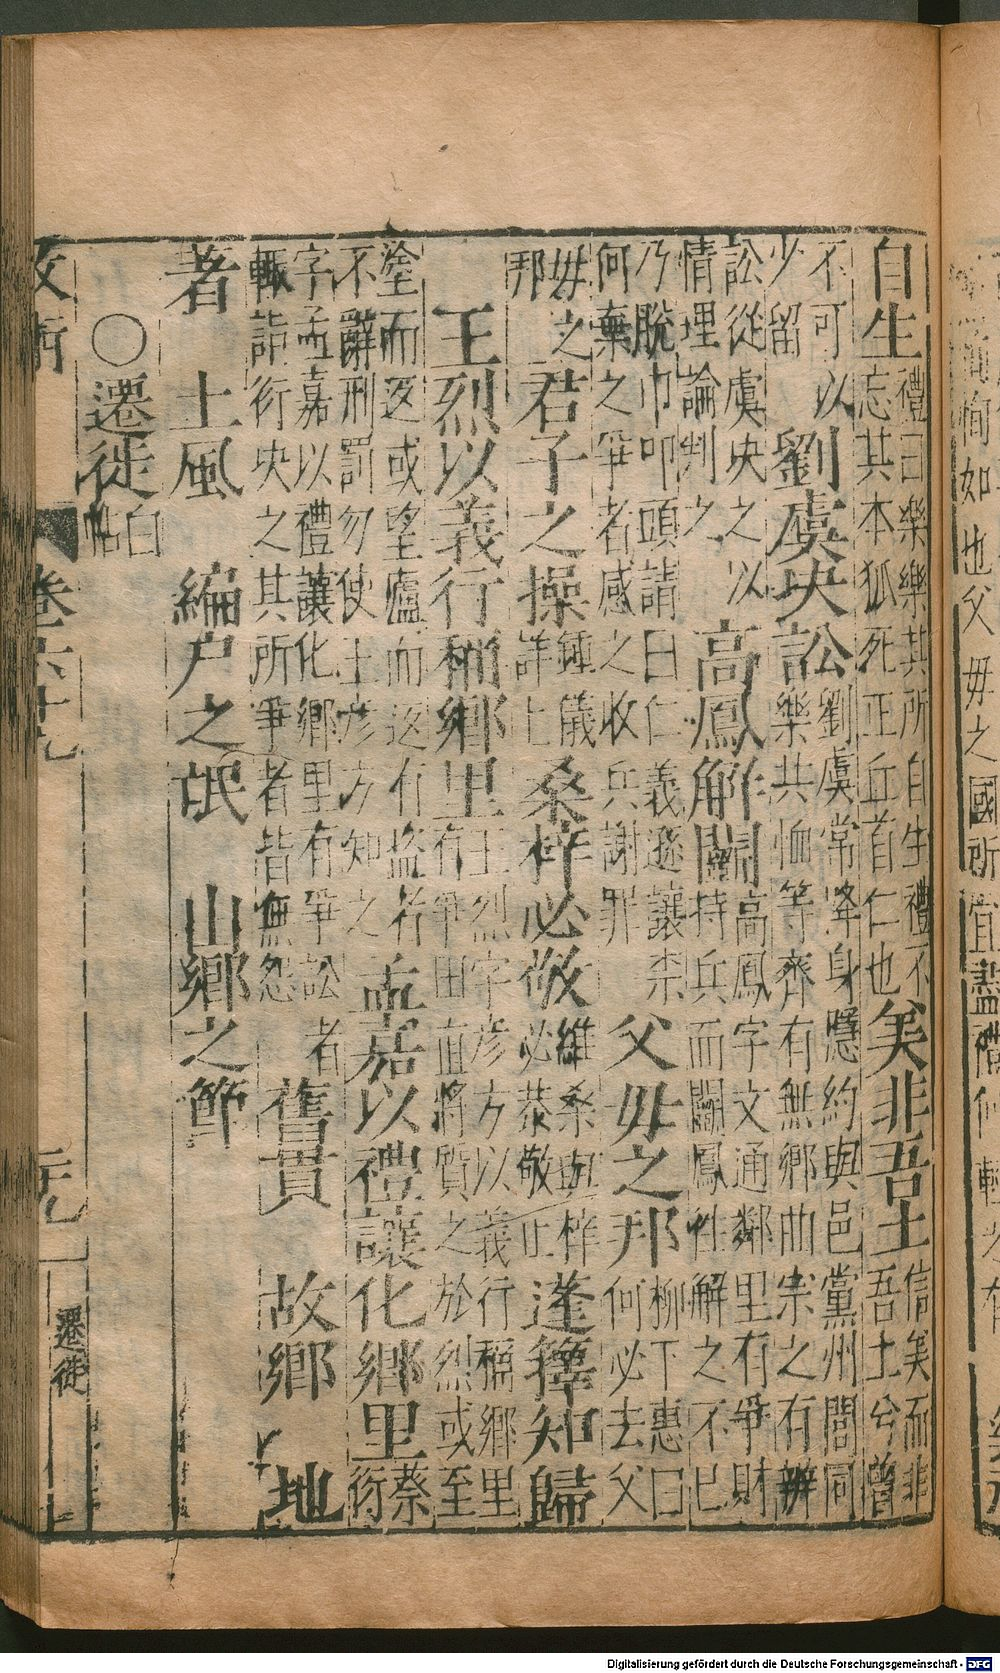 自生禮曰樂樂其所自生禮不忘其本狐死正丘首仁也美非吾土信美而非吾土兮曾
不可以少留劉虞決訟劉虞常降身隱約與邑黨州閭同樂共恤等齊有無鄉曲宗之有辨
訟從虞決之以情理論判之高鳳解鬬高鳳字文通鄰里有爭財持兵而鬬鳳往解之不已
乃脫巾叩頭請曰仁義遜讓柰何棄之爭者感之收兵謝罪父毋之邦柳下惠曰何必去父
毋之邦君子之操鍾儀詳上桑梓必敬維桑與梓必恭敬止蓬蓽知歸
王烈以義行稱鄉里王烈字彥方以義行稱鄉里有爭田直將質之於烈或至
塗而返或望廬而返有盜者不辭刑罰勿使王彥方知之孟嘉以禮讓化鄉里蔡衍
字孟嘉以禮讓化鄉里有爭訟者輙詣衍決之其所爭者皆無怨舊貫 故鄉 地
著 土風 編戶之氓 山鄉之節
○遷徙白帖
卷六十九
遷徙
如也父毋之國所宜盡
Digitalisierung gefördert durch die Deutsche Forschungsgemeinschaft - DFG